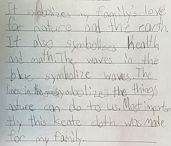 It symbolizes my family's love
for nature and the earth
It also symbolizes health
and math. The waves in the
blue symbolize waves. The
lines in the symbolize the things
nature can do to us. Most importan
tly this kente cloth was made
for my family.